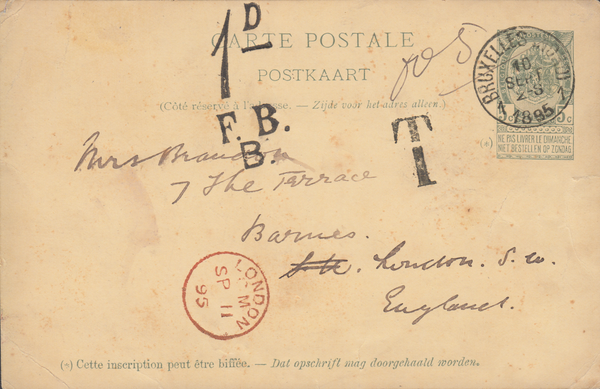 1D
CARTE POSTALE
POSTKAART
(Côté réservé à l'adresse. — Zijde voor het adres alleen.)
BRUXELLES
10
SEPT
1895
5c
(*) NE PAS LIVRER LE DIMANCHE
NIET BESTELLEN OP ZONDAG
F.B.
B
T
Mrs Brandon
7 The Terrace
Barnes.
London. S.W.
England.
LONDON
MON
SP 11
95
(*) Cette inscription peut être biffée. — Dat opschrift mag doorgehaald worden.